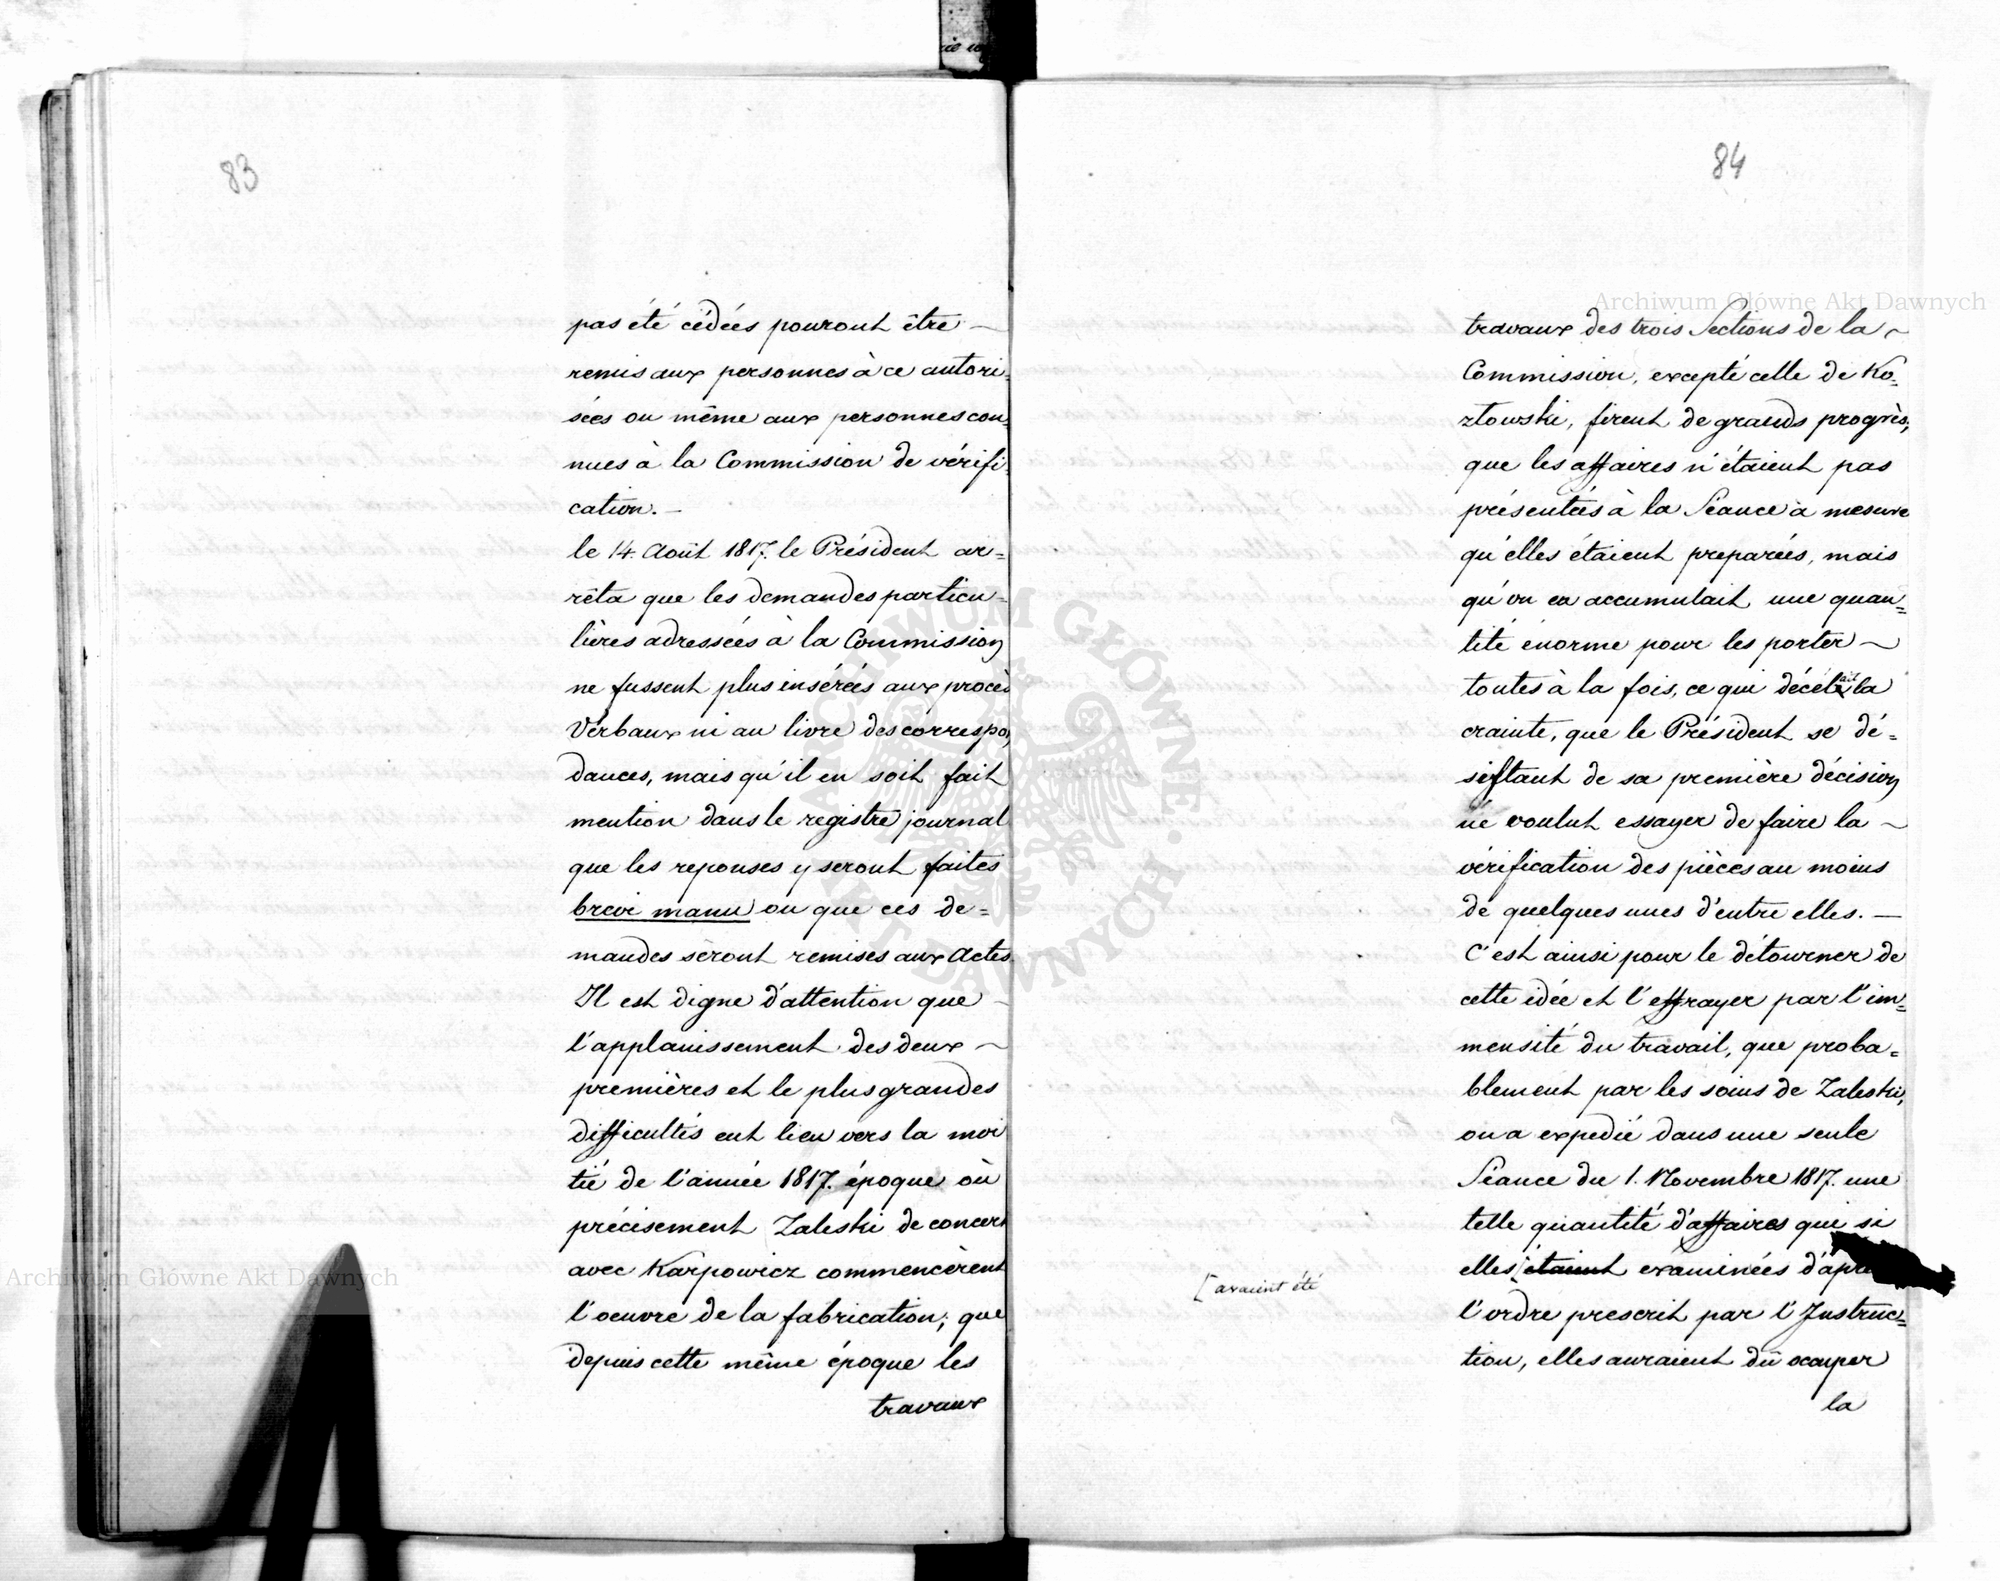 83
pas été cédées pouront être
remis aux personnes à ce autori-
sées ou même aux personnes con-
nues à la Commission de vérifi-
cation. –
le 14. Août 1817. le Président ar=
rêta que les demandes particu-
lières adressées à la Commission
ne fussent plus insérées aux procès
Verbaux ni au livre des correspon
dances, mais qu'il en soit fait
mention dans le registre journal
que les reponses y seront faites
brevi manu ou que ces de=
mandes seront remises aux Actes.
Il est digne d'attention que
l'applanissement des deux
premières et le plus grandes
difficultés eut lieu vers la moi
tié de l'année 1817. époque où
précisement Zaleski de concert
avec Karpowicz commencèrent
l'oeuvre de la fabrication; que
depuis cette même époque les
travaux
84
travaux des trois Sections de la
Commission, excepté celle de Ko=
złowski, firent de grands progrès;
que les affaires n'étaient pas
présentées à la Séance à mesure
qu'elles étaient preparées, mais
qu'on en accumulait une quan=
tité énorme pour les porter
toutes à la fois, ce qui décélait la
crainte, que le Président se dé=
sistant de sa première décision
ne voulut essayer de faire la
vérification des pièces au moins
de quelques unes d'entre elles. –
C'est ainsi pour le détourner de
cette idée et l'effrayer par l'im=
mensité du travail, que proba=
blement par les soins de Zaleski,
on a expedié dans une seule
Séance du 1. Novembre 1817. une
telle quantité d'affaires qui si
elles [étaient examinées d'après
[avaient été
l'ordre prescrit par l'Instruc=
tion, elles auraient dû occuper
la
Archiwum Główne Akt Dawnych
Archiwum Główne Akt Dawnych
ARCHIWUM GŁÓWNE AKT DAWNYCH